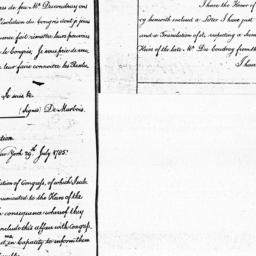 res de feu Mr Ducoudray ont
Résolution du Congrès dont je joins
ance fait remettre leurs pouvoirs
le Congrès. Je vous prie de me
leur faire connoitre les Résolu
Je suis &c
(signé) De Marbois.
tion
New York 29th July 1785.
ution of Congress, of which I sub
ommunicated to the Heirs of the
consequence whereof they
onclude this affair with Congress.
me in Capacity to inform them
I have the Honor of
ry herewith enclosed a Letter I have just
and a Translation of it, respecting a
Heirs of the late Mr Du Coudray from the
I have